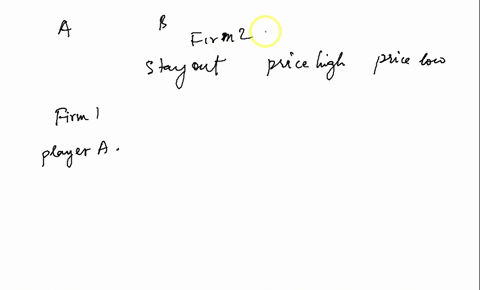 A B
Firm 2
Stay out price high price low
Firm 1
player A.